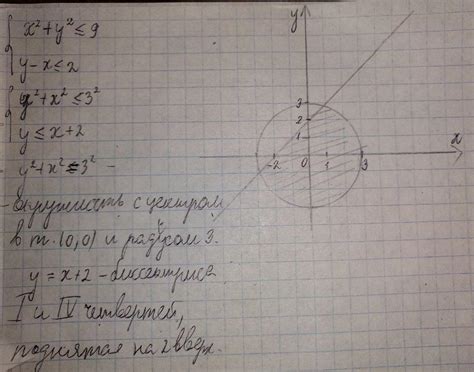 x² + y² ≤ 9
y - x ≤ 2
y² + x² ≤ 3²
y ≤ x + 2
y² + x² ≤ 3² -
окружность с центром
в т. (0,0) и радиусом 3.
y = x + 2 - биссектриса
I и IV четвертей,
поднятая на 2 вверх.
y
3
2
1
-2
0
1
3
x